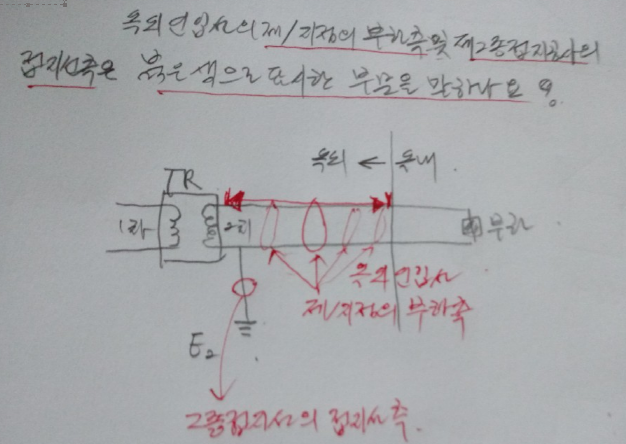 옥외 인입선의 제1지점의 부하측 및 제2종접지공사의
접지선측은 붉은색으로 표시한 부분을 말하나요?
옥외 ← 옥내
TR
1차
2차
부하
옥외 인입선
제1지점의 부하측
E₂
2종접지선의 접지선측.